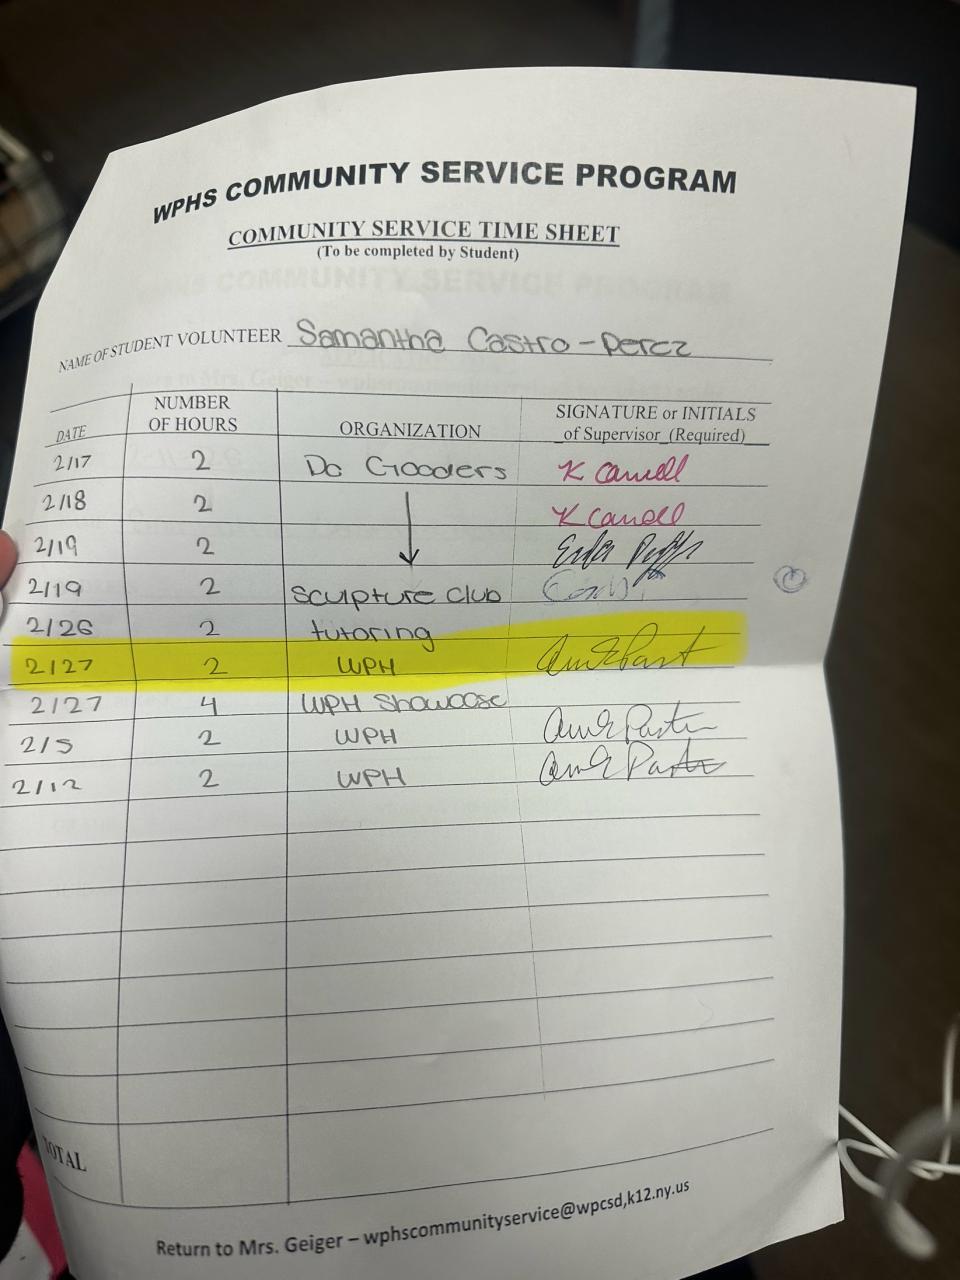 WPHS COMMUNITY SERVICE PROGRAM
COMMUNITY SERVICE TIME SHEET
(To be completed by Student)
NAME OF STUDENT VOLUNTEER Samantha Castro-Perez
DATE NUMBER OF HOURS ORGANIZATION SIGNATURE or INITIALS of Supervisor (Required)
2/17 2 Do Gooders K Carroll
2/18 2 K Carroll
2/19 2
2/19 2 Sculpture club
2/26 2 tutoring
2/27 2 WPH
2/27 4 WPH Showcase
2/5 2 WPH
2/12 2 WPH
TOTAL
Return to Mrs. Geiger – wphscommunityservice@wpcsd,k12.ny.us